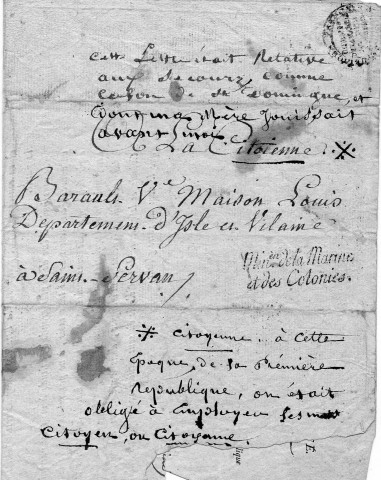 cette Lettre était Relative
aux secours, comme
colon de St Domingue, et
dont ma Mère Jouissait
avant moi
La Citoienne. ※
Barault Ve Maison Louis
Departement d'Isle et Vilaine
à Saint-Servan
de la Marine
et des Colonies.
※ citoyenne .. à cette
Epoque, de la Première
république, on était
obligé à Employer les mots
citoyen, ou citoyenne.